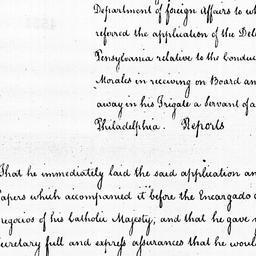 Department of foreign Affairs to wh
referred the application of the Dele
Pensylvania relative to the Conduc
Morales in receiving on Board an
away in his Frigate a Servant of a
Philadelphia. Reports
That he immediately laid the said application an
Papers which accompanied it before the Encargado d
negocios of his Catholic Majesty, and that he gave y
Secretary full and express assurances that he woul